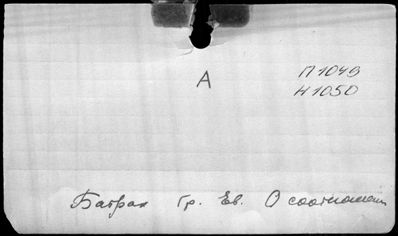 А
П1049
Н1050
Батрак Гр. Ев. О соотношении